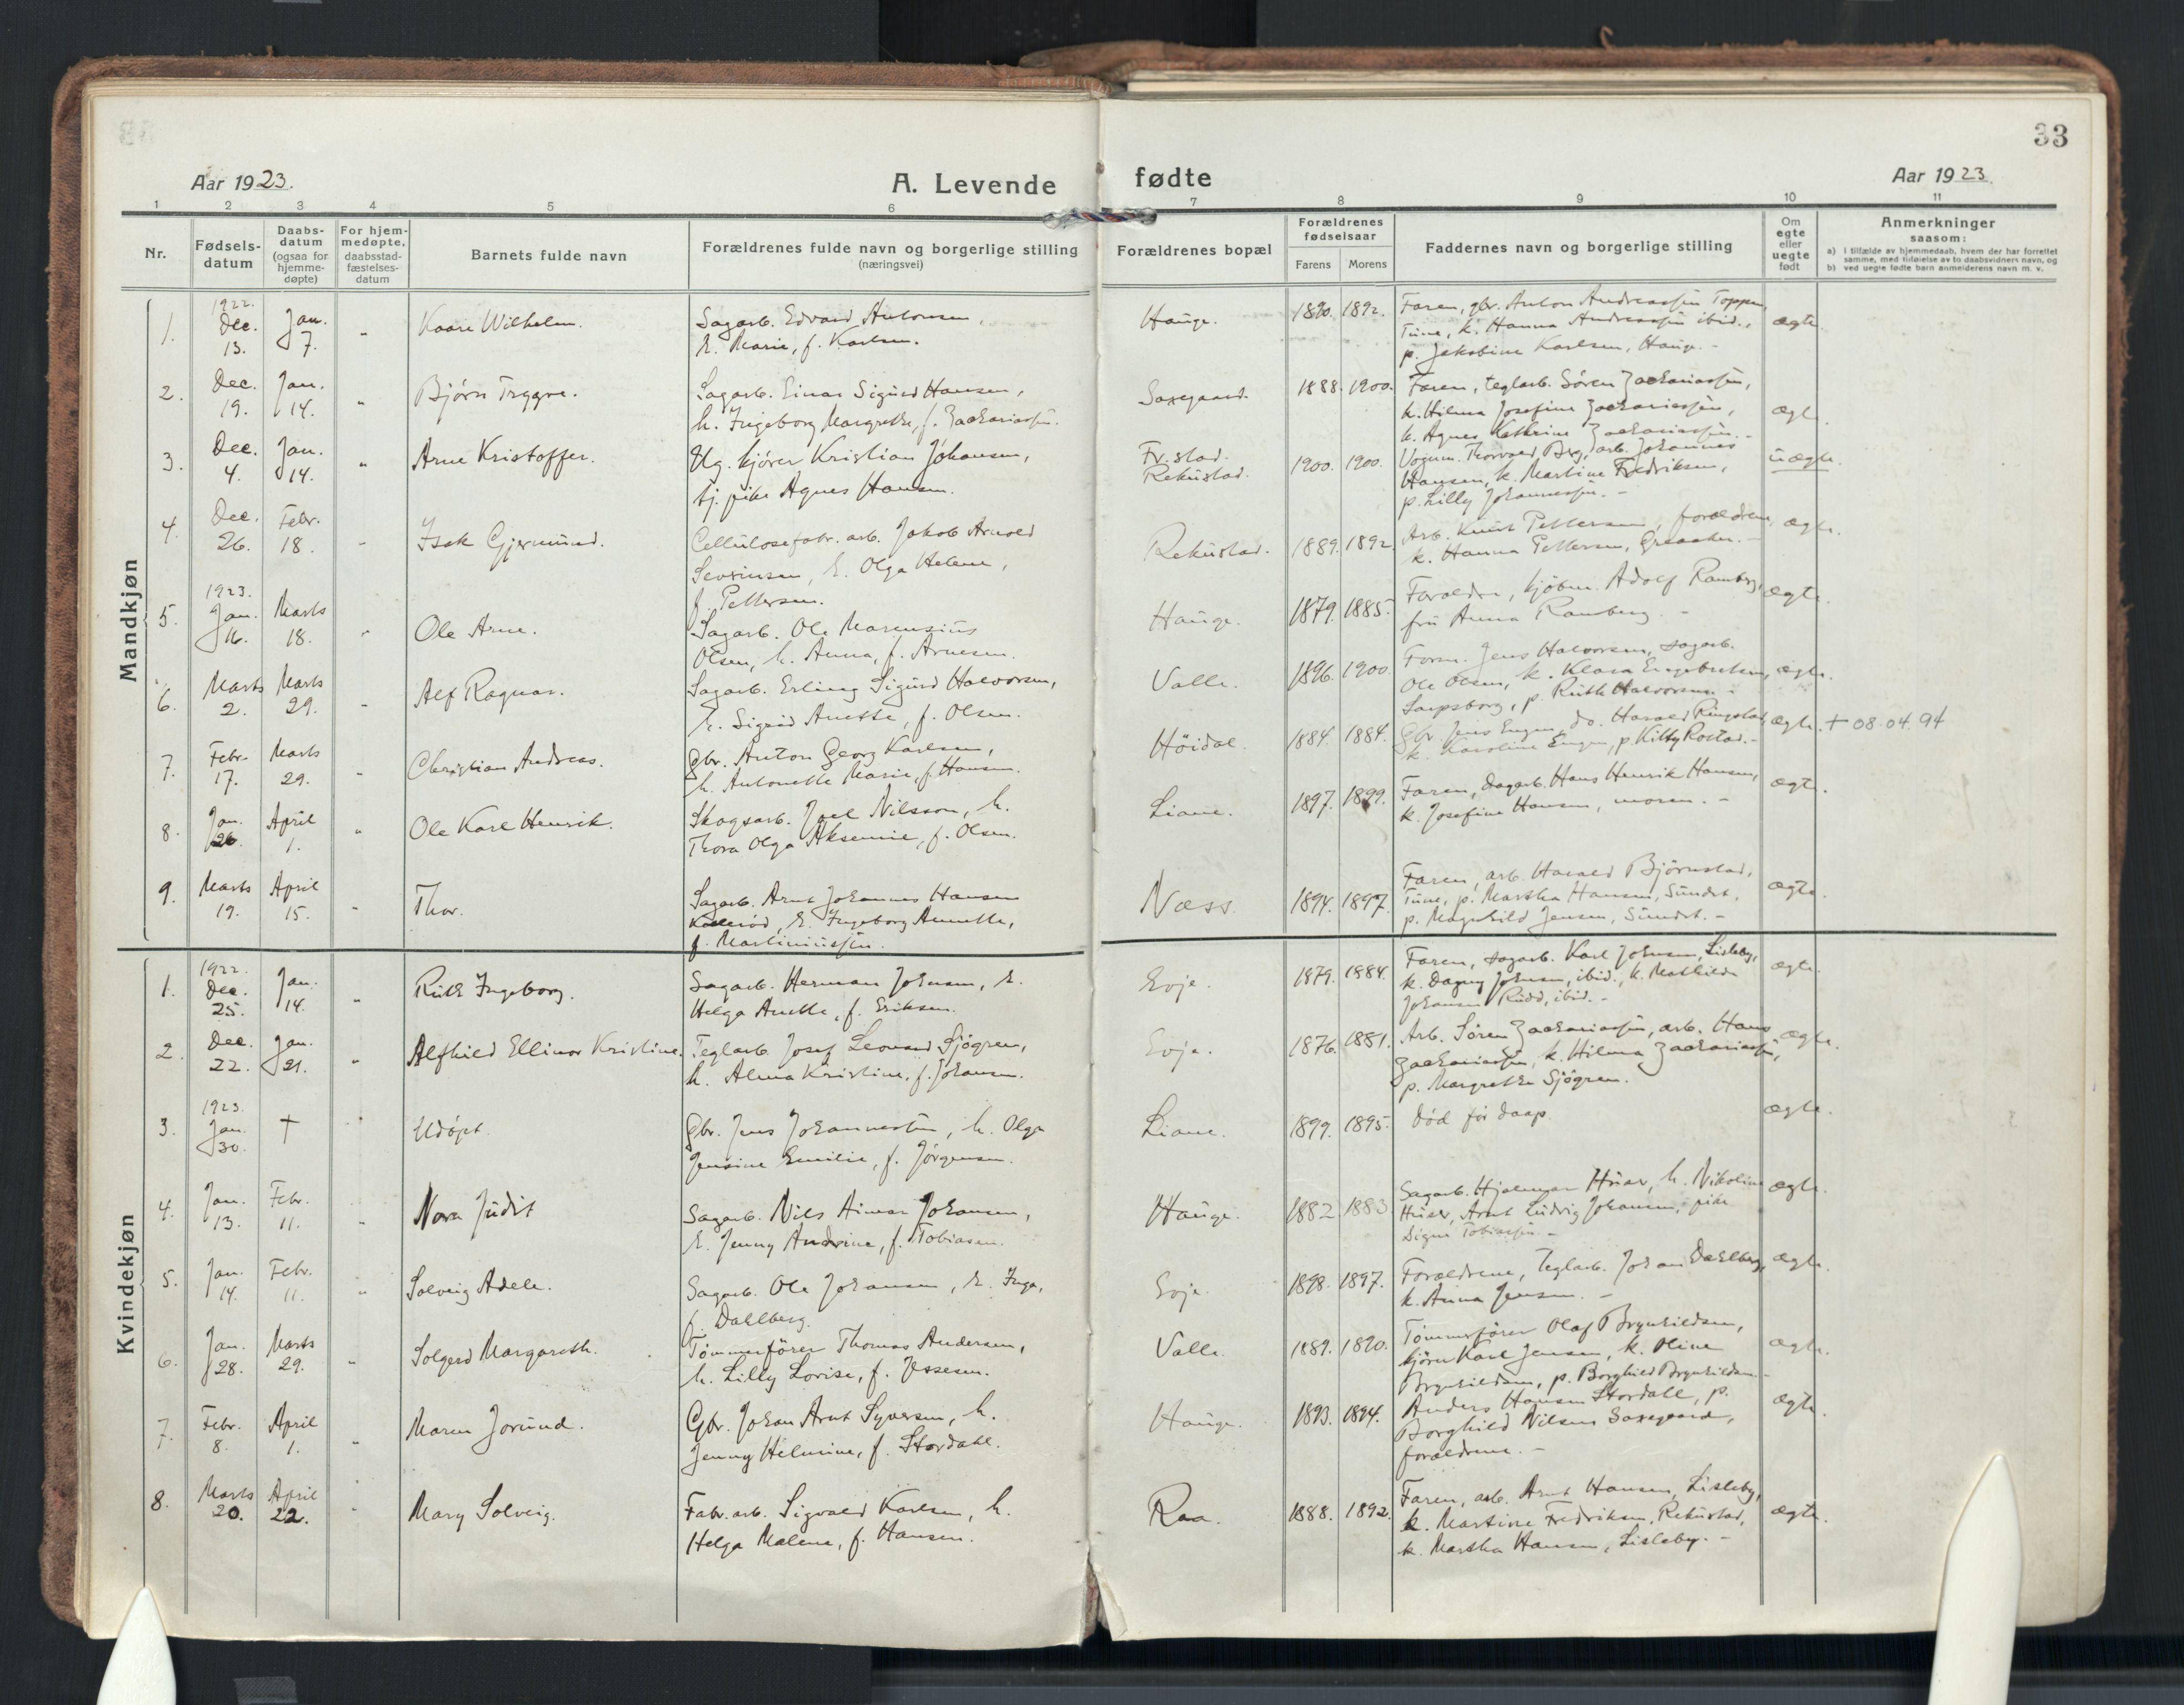 33
Aar 1923.
A. Levende fødte
Aar 1923
1 2 3 4 5 6 7 8 9 10 11
Nr.
Fødselsdatum
Daabsdatum (ogsaa for hjemmedøpte)
For hjemmedøpte, daabsstadfæstelsesdatum
Barnets fulde navn
Forældrenes fulde navn og borgerlige stilling
(næringsvei)
Forældrenes bopæl
Forældrenes fødselsaar
Farens Morens
Faddernes navn og borgerlige stilling
Om egte eller uegte født
Anmerkninger
saasom:
a) i tilfælde av hjemmedaab, hvem der har forrettet
samme, med tilføielse av to daabsvidners navn, og
b) ved uegte fødte barn anmelderens navn m. v.
Mandkjøn
1. 1922. Dec. 13. Jan. 7. " Kaare Wilhelm. Sagarb. Edvard Antonsen, h. Marie, f. Karlsen. Hauge. 1890. 1892. Faren, gbr. Anton Andreassen Toppen,
Tune, k. Hanna Andreassen ibid.,
p. Jakobine Karlsen, Hauge. - ægte.
2. Dec. 19. Jan. 14. " Bjørn Trygve. Sagarb. Einar Sigurd Hansen,
h. Ingeborg Margrethe, f. Zachariassen. Saxegaard. 1888. 1900. Faren, teglarb. Søren Zachariassen,
k. Hilma Josefine Zachariassen,
k. Agnes Kathrine Zachariassen. - ægte.
3. Dec. 4. Jan. 14. " Arne Kristoffer. Ug. kjører Kristian Johansen,
tj. pike Agnes Hansen. Fr.stad.
Rekustad. 1900. 1900. Vognm. Thorvald Berg, arb. Johannes
Hansen, k. Martine Fredriksen,
p. Lilly Johannessen. - uægte.
4. Dec. 26. Febr. 18. " Isak Gjermund. Cellulosefabr. arb. Jakob Arnold
Severinsen, h. Olga Helene,
f. Pettersen. Rekustad. 1889. 1892. Arb. Knut Pettersen, forældrene,
k. Hanna Pettersen, Greaaker. - ægte.
5. 1923. Jan. 16. Marts 18. " Ole Arne. Sagarb. Ole Marensius
Olsen, h. Anna, f. Arnesen. Hauge. 1879. 1885. Forældre, kjøbm. Adolf Ramberg,
fru Anna Ramberg. - ægte.
6. Marts 2. Marts 29. " Alf Ragnar. Sagarb. Erling Sigurd Halvorsen,
h. Sigrid Anette, f. Olsen. Valle. 1896. 1900. Form. Jens Halvorsen, sagarb.
Ole Olsen, k. Klara Engebretsen,
Sarpsborg, p. Ruth Halvorsen. - ægte.
7. Febr. 17. Marts 29. " Christian Andreas. Gbr. Anton Georg Karlsen,
h. Antonette Marie, f. Hansen. Höidal. 1884. 1884. Gbr. Jens Engen, do. Harald Ringstad,
k. Karoline Engen, p. Kitty Rostad. - ægte. + 08.04.94
8. Jan. 26. April 1. " Ole Karl Henrik. Skogsarb. Joel Nilsson, h.
Thora Olga Aksemine, f. Olsen. Liane. 1897. 1899. Faren, dagarb. Hans Henrik Hansen,
k. Josefine Hansen, moren. - ægte.
9. Marts 19. April 15. " Thor. Sagarb. Arnt Johannes Hansen
h. Ingeborg Annette,
f. Martiniussen. Næss. 1894. 1897. Faren, arb. Harald Bjørnstad,
Tune, p. Martha Hansen, Sundet,
p. Magnhild Jensen, Sundet. - ægte.
Kvindekjøn
1. 1922. Dec. 25. Jan. 14. " Ruth Ingeborg. Sagarb. Herman Johnsen, h.
Helga Anette, f. Eriksen. Evje. 1879. 1884. Faren, sagarb. Karl Johnsen, Lisleby,
k. Dagny Johnsen, ibid., k. Mathilde
Johansen Rudd, ibid. - ægte.
2. Dec. 22. Jan. 21. " Alfhild Ellinor Kristine. Teglarb. Josef Leonard Sjögren,
h. Alma Kristine, f. Johansen. Evje. 1876. 1881. Arb. Søren Zachariassen, arb. Hans
Zachariassen, k. Hilma Zachariassen,
p. Margrethe Sjögren. ægte.
3. 1923. Jan. 30. † " Udöpt. Gbr. Jens Johannessen, h. Olga
Jensine Emilie, f. Jörgensen. Liane. 1899. 1895. Död för daap. ægte.
4. Jan. 13. Febr. 11. " Nora Judit Sagarb. Nils Aimar Johansen,
h. Jenny Andrine, f. Tobiasen. Hauge. 1882 1883 Sagarb. Hjalmar Huser, h. Nikoline
Huser, Arnt Ludvig Johansen, pike
Signe Tobiassen. - ægte.
5. Jan. 14. Febr. 11. " Solveig Adele. Sagarb. Ole Johansen, h. Inga,
f. Dahlberg. Evje. 1898. 1897. Forældrene, Teglarb. Johan Dahlberg,
k. Anna Jensen. - ægte.
6. Jan. 28. Marts 29. " Solgerd Margareth. Tömmerfören Thomas Andersen,
h. Lilly Lovise, f. Jessesen. Valle. 1889. 1890. Tömmerfören Olaf Brynhildsen,
kjörer Karl Jensen, k. Oline
Brynhildsen, p. Borghild Brynhildsen. - ægte.
7. Febr. 8. April 1. " Maren Jorund. Gbr. Johan Arnt Syversen, h.
Jenny Helmine, f. Stordahl. Hauge. 1893. 1894. Anders Hansen Stordahl, p.
Borghild Nilsen Saxegaard,
forældrene. - ægte.
8. Marts 20. April 22. " Mary Solveig. Fabr. arb. Sigvald Karlsen, h.
Helga Malene, f. Hansen. Raa. 1888. 1892. Faren, arb. Arnt Hansen, Lisleby,
k. Martine Fredriksen, Rekustad,
k. Martha Hansen, Lisleby. - ægte.